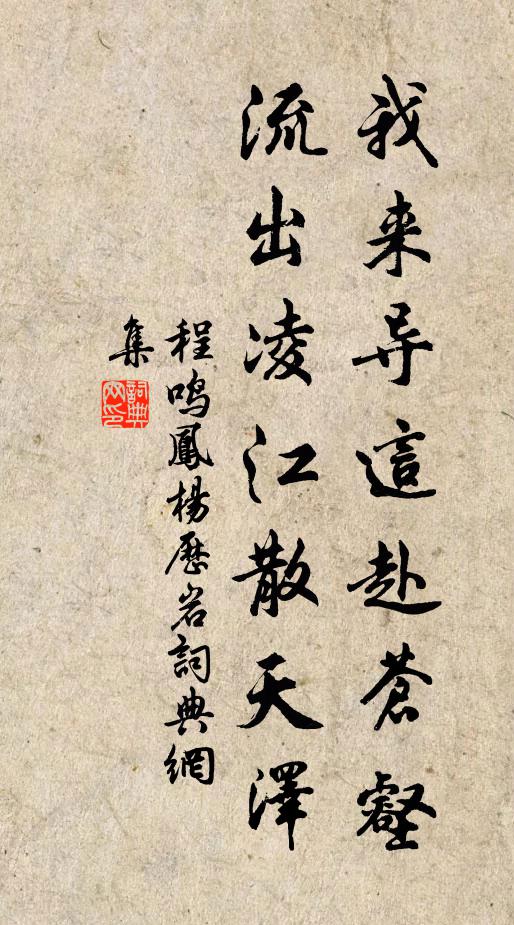 我来导這赴蒼壑
流出凌江散天澤
程鳴鳳楊歷岩詞典網
集
詞典网印